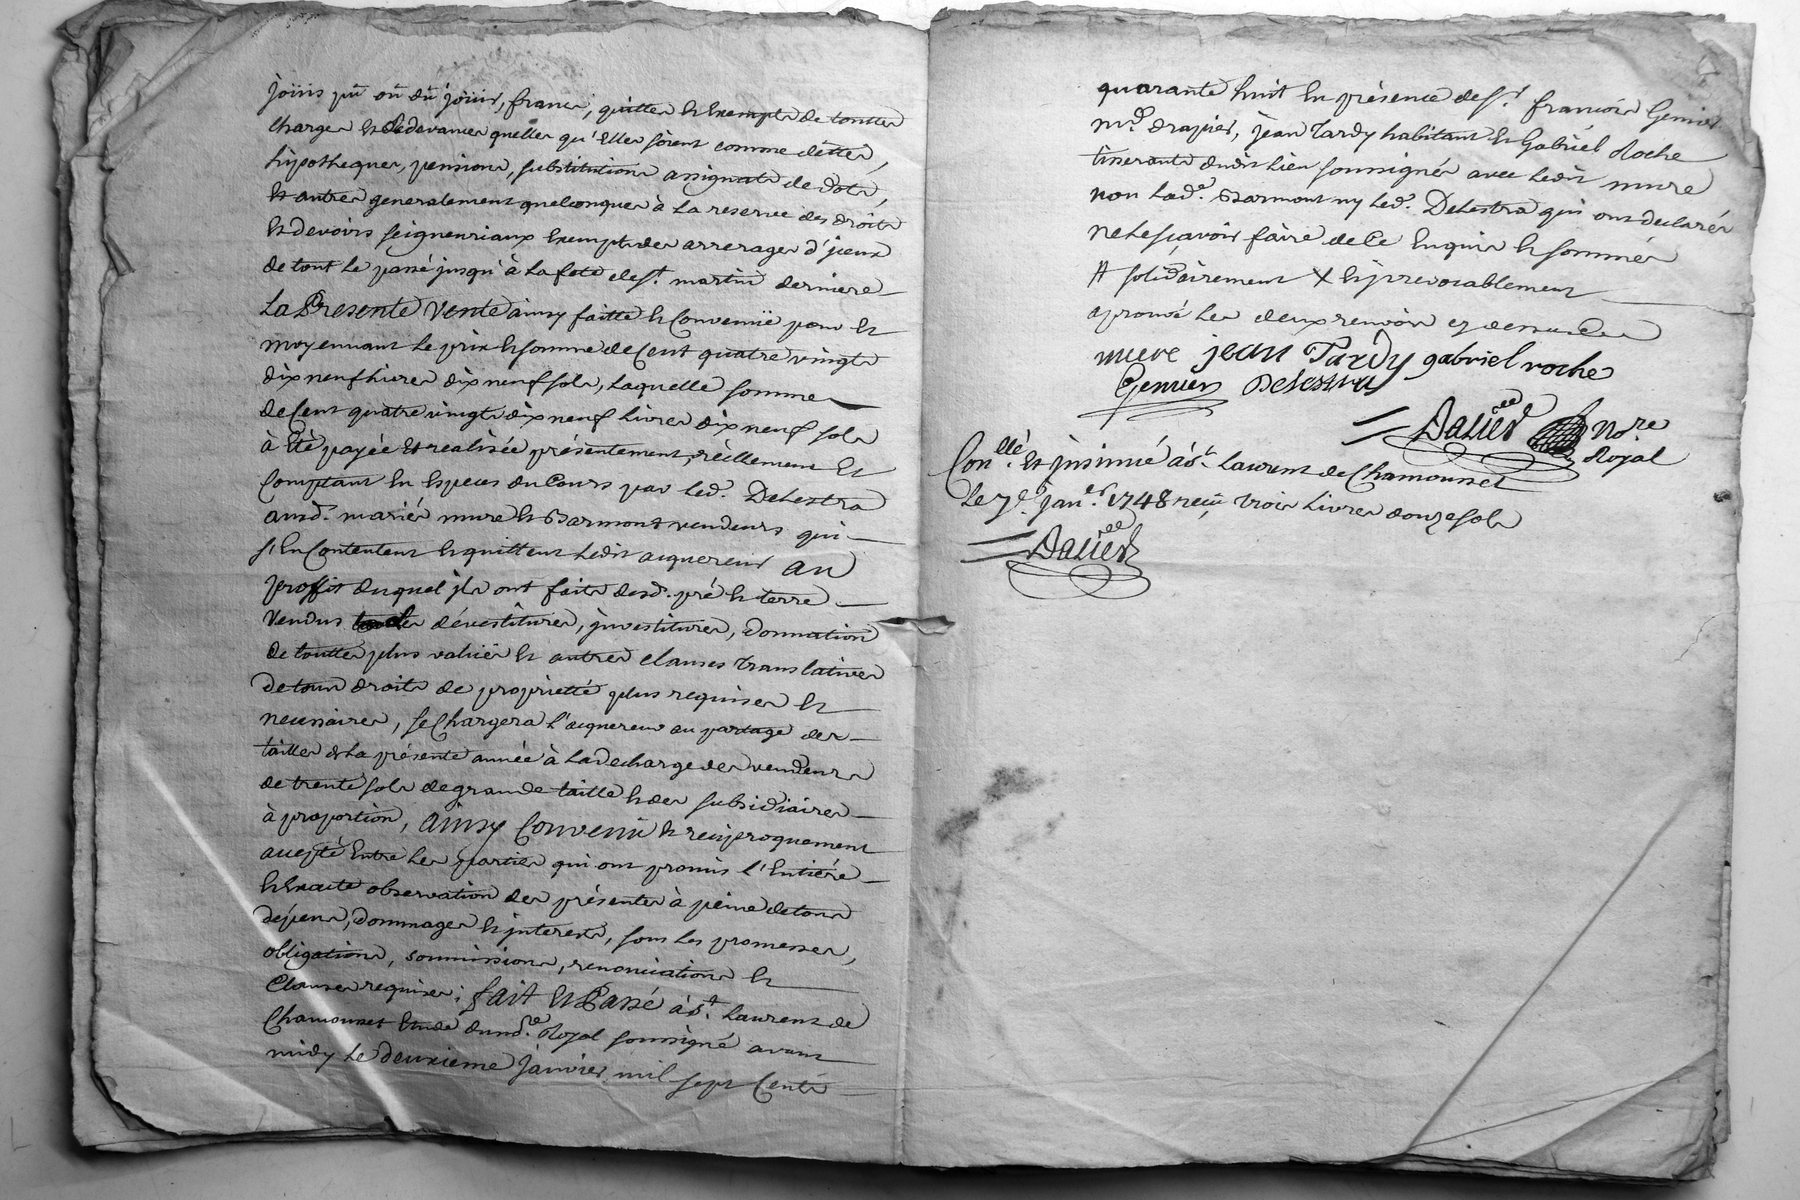 joüis pû où dû joüir, francs, quittes et exempts de touttes
charges et de devances quelles qu'elles soient comme dettes,
hipotheques, pensions, substitutions assignats de dots,
et autres generalement quelconques à la reserve des droits
et devoirs seigneuriaux exempts des arrerages d'jceux
de tout le passé jusqu'à la fete de st. martin derniere
La Presente Vente ainsy faitte et Convenüe pour et
moyennant le prix et somme de Cent quatre vingts
dix neuf livres dix neuf sols, laquelle somme
de Cent quatre vingts dix neuf livres dix neuf sols
à êté payée et realisée présentement, réellement et
Comptant en especes du Cours par led. Delestra
ausd. mariés mure et Barmont vendeurs qui
s'en Contentent et quittent ledit acquereur au
proffit duquel jls ont faits desd. pré et terre
Vendus dévestitures, jnvestitures, donnation
de touttes plus values et autres clauses translatives
de tous droits de proprietté plus requises et
necessaires, se Chargera l'acquereur au partage des
tailles de la présente année à la decharge des vendeurs
de trente sols de grande taille et des subsidiaires
à proportion, Ainsy Convenu et reciproquement
accepté entre les parties qui ont promis l'entiére
et exacte observation des présentes à peine de tous
depens, dommages et jnterests, sous les promesses,
obligations, soumissions, renonciations et
Clauses requises; fait et Passé à St. Laurent de
Chamousset Etude du nore. Royal soussigné avant
midy le deuxieme janvier mil sept Cents
quarante huit en présence de sr. francois Genier
md. drapier, jean Tardy habitant et Gabriël Roche
tisserants dudit lieu soussignés avec ledit mure
non lade. Barmont ny led. Delestra qui ont declarés
ne le sçavoir faire de Ce enquis et sommés
# solidairement X et jrrevocablement
aprouvé les deux renvois cy dessus
mure jean Tardy gabriel roche
Genier Delestra
Dalier Nore
Royal
Conllé. et jnsinué à St. Laurent de Chamousset
le 7e. janer. 1748 reçu trois livres douze sols
Dalier